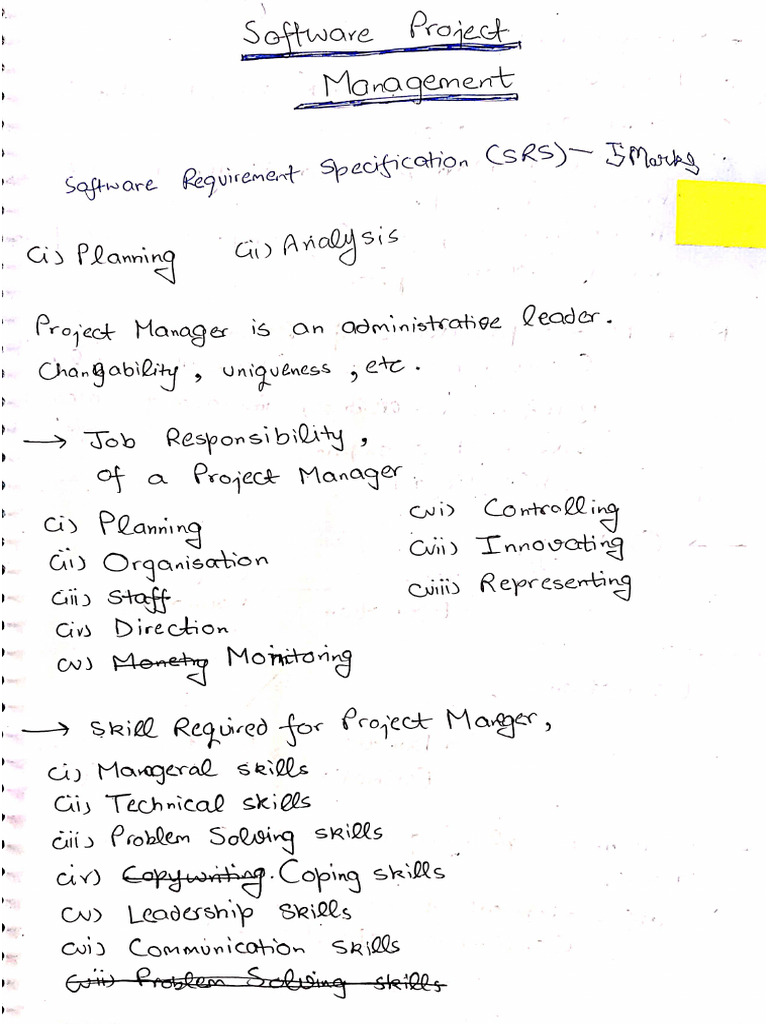 Software Project
Management
Software Requirement Specification (SRS) – 5 Marks
(i) Planning (ii) Analysis
Project Manager is an administrative leader.
Changability, uniqueness, etc.
→ Job Responsibility,
of a Project Manager
(i) Planning
(ii) Organisation
(iii) Staff
(iv) Direction
(v) Monetry Monitoring
(vi) Controlling
(vii) Innovating
(viii) Representing
→ Skill Required for Project Manger,
(i) Manageral skills
(ii) Technical skills
(iii) Problem Solving skills
(iv) Copywriting. Coping skills
(v) Leadership skills
(vi) Communication skills
(vii) Problem Solving skills